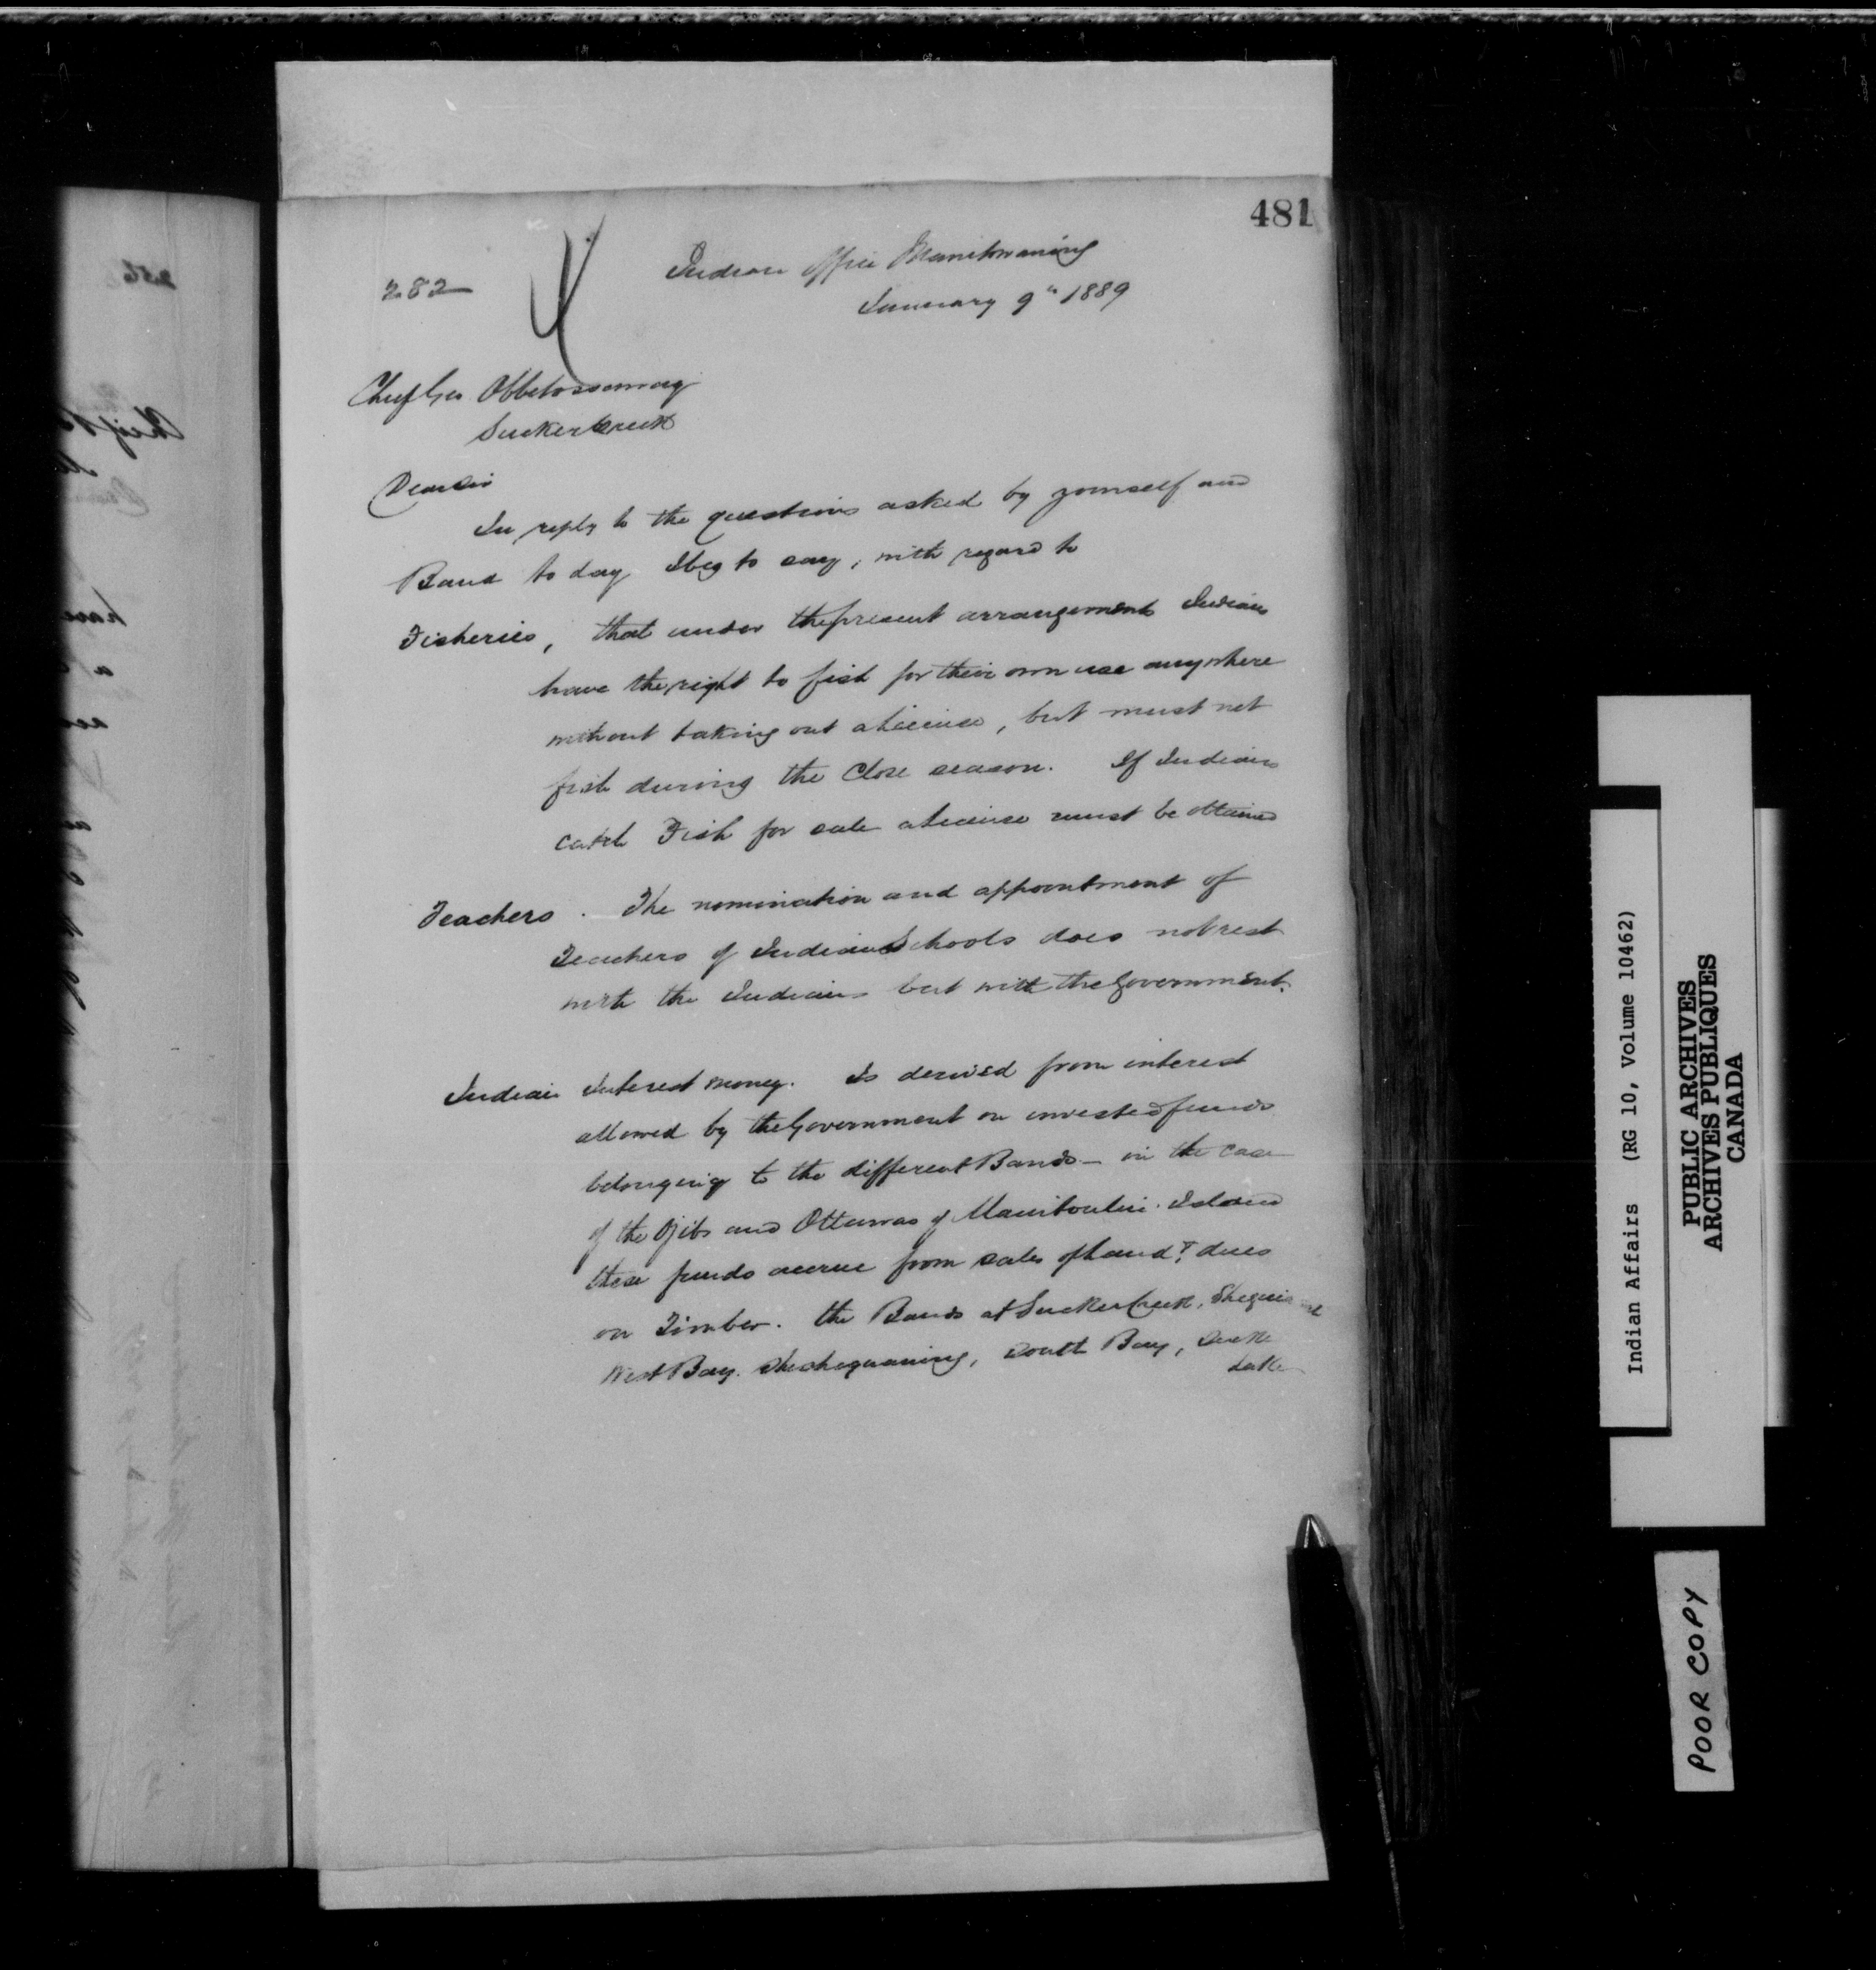 481
282
Indian Office Manitowaning
January 9th 1889
Chief Geo Obbetossoway
Sucker Creek
Dear Sir
In reply to the questions asked by yourself and
Band to day I beg to say, with regard to
Fisheries, that under the present arrangements Indians
have the right to fish for their own use anywhere
without taking out a license, but must not
fish during the Close season. If Indians
catch Fish for sale a license must be obtained
Teachers. The nomination and appointment of
Teachers of Indian Schools does not rest
with the Indians but with the Government.
Indian Interest money. Is derived from interest
allowed by the Government on invested funds
belonging to the different Bands - in the case
of the Ojibs and Ottawas of Manitoulin Island
these funds accrue from sales of Land & dues
on Timber. the Bands at Sucker Creek, Sheguiandah
West Bay. Sheshegwaning, South Bay, Sucker
Lake
Indian Affairs (RG 10, Volume 10462)
PUBLIC ARCHIVES
ARCHIVES PUBLIQUES
CANADA
POOR COPY